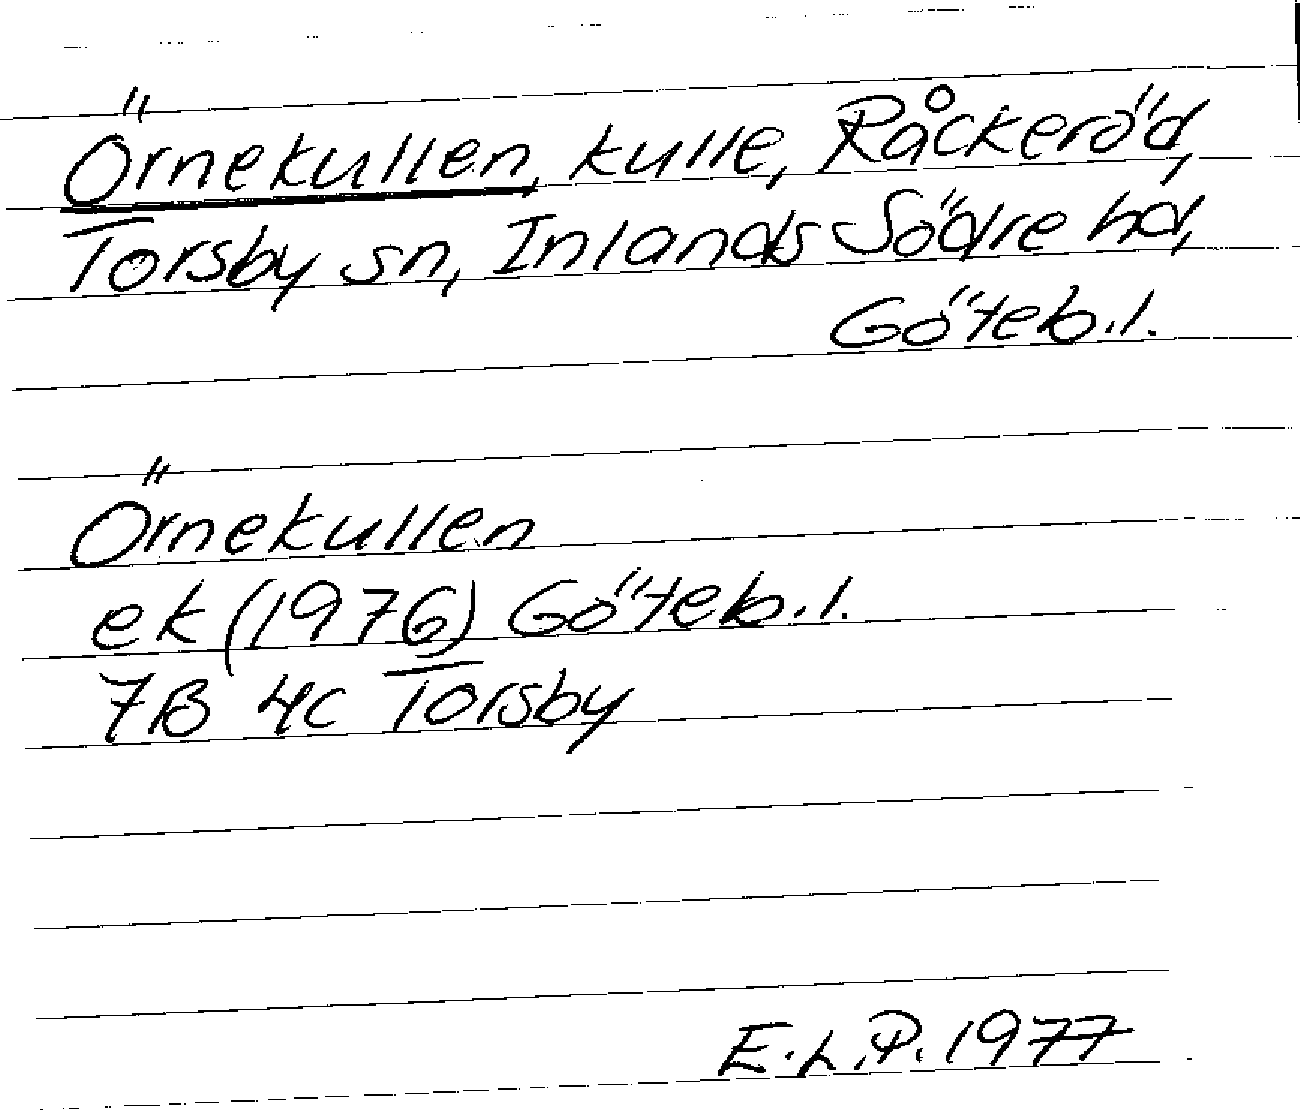 Örnekullen, kulle, Råckeröd,
Torsby sn, Inlands Södre hd,
Göteb.l.
Örnekullen
ek (1976) Göteb.l.
7B 4c Torsby
E.L.P. 1977